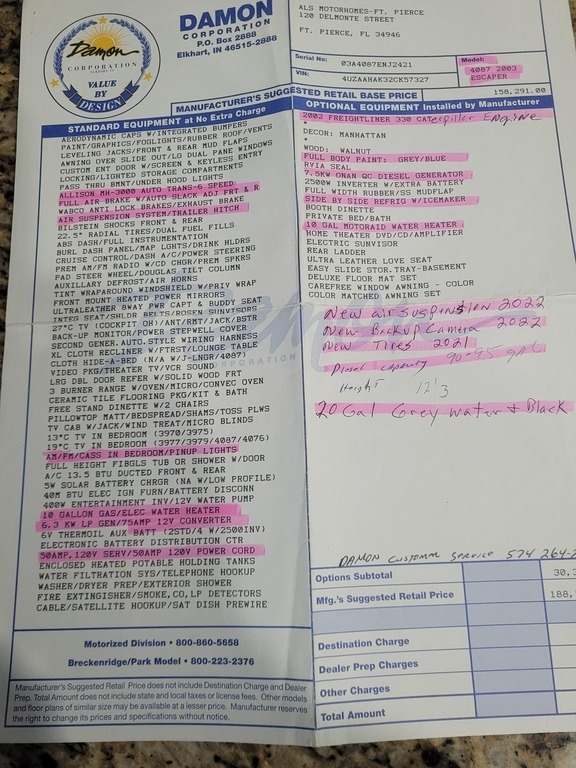 Damon
CORPORATION
VALUE
BY
DESIGN
DAMON
CORPORATION
P.O. Box 2888
Elkhart, IN 46515-2888
ALS MOTORHOMES-FT. PIERCE
120 DELMONTE STREET
FT. PIERCE, FL 34946
Serial No: 03A4087ENJ2421
VIN: 4UZAAHAK32CK57327
Model:
4087 2003
ESCAPER
MANUFACTURER'S SUGGESTED RETAIL BASE PRICE 158,291.00
STANDARD EQUIPMENT at No Extra Charge
AERODYNAMIC CAPS W/INTEGRATED BUMPERS
PAINT/GRAPHICS/FOGLIGHTS/RUBBER ROOF/VENTS
LEVELING JACKS/FRONT & REAR MUD FLAPS
AWNING OVER SLIDE OUT/LG DUAL PANE WINDOWS
CUSTOM ENT DOOR W/SCREEN & KEYLESS ENTRY
LOCKING/LIGHTED STORAGE COMPARTMENTS
PASS THRU BMNT/UNDER HOOD LIGHTS
ALLISON MH-3000 AUTO TRANS-6 SPEED
FULL AIR BRAKE W/AUTO SLACK ADJ FRT & R
WABCO ANTI LOCK BRAKES/EXHAUST BRAKE
AIR SUSPENSION SYSTEM/TRAILER HITCH
BILSTEIN SHOCKS FRONT & REAR
22.5" RADIAL TIRES/DUAL FUEL FILLS
ABS DASH/FULL INSTRUMENTATION
BURL DASH PANEL/MAP LGHTS/DRINK HLDRS
CRUISE CONTROL/DASH A/C/POWER STEERING
PREM AM/FM RADIO W/CD CHGR/PREM SPKRS
PAD STEER WHEEL/DOUGLAS TILT COLUMN
AUXILLARY DEFROST/AIR HORNS
TINT WRAPAROUND WINDSHIELD W/PRIV WRAP
FRONT MOUNT HEATED POWER MIRRORS
ULTRALEATHER 8WAY PWR CAPT & BUDDY SEAT
INTEG SEAT/SHLDR BELTS/ROSEN SUNVISORS
27"C TV (COCKPIT OH)/ANT/RMT/JACK/BSTR
BACK-UP MONITOR/POWER STEPWELL COVER
SECOND GENER. AUTO.STYLE WIRING HARNESS
XL CLOTH RECLINER W/FTRST/LOUNGE TABLE
CLOTH HIDE-A-BED (N/A W/J-LNGR/4087)
VIDEO PKG/THEATER TV/VCR SOUND
LRG DBL DOOR REFER W/SOLID WOOD FRT
3 BURNER RANGE W/OVEN/MICRO/CONVEC OVEN
CERAMIC TILE FLOORING PKG/KIT & BATH
FREE STAND DINETTE W/2 CHAIRS
PILLOWTOP MATT/BEDSPREAD/SHAMS/TOSS PLWS
TV CAB W/JACK/WIND TREAT/MICRO BLINDS
13"C TV IN BEDROOM (3970/3975)
19"C TV IN BEDROOM (3977/3979/4087/4076)
AM/FM/CASS IN BEDROOM/PINUP LIGHTS
FULL HEIGHT FIBGLS TUB OR SHOWER W/DOOR
A/C 13.5 BTU DUCTED FRONT & REAR
5W SOLAR BATTERY CHRGR (NA W/LOW PROFILE)
40M BTU ELEC IGN FURN/BATTERY DISCONN
400W ENTERTAINMENT INV/12V WATER PUMP
10 GALLON GAS/ELEC WATER HEATER
6.3 KW LP GEN/75AMP 12V CONVERTER
6V THERMOIL AUX BATT (2STD/4 W/2500INV)
ELECTRONIC BATTERY DISTRIBUTION CTR
50AMP,120V SERV/50AMP 120V POWER CORD
ENCLOSED HEATED POTABLE HOLDING TANKS
WATER FILTRATION SYS/TELEPHONE HOOKUP
WASHER/DRYER PREP/EXTERIOR SHOWER
FIRE EXTINGUISHER/SMOKE,CO,LP DETECTORS
CABLE/SATELLITE HOOKUP/SAT DISH PREWIRE
OPTIONAL EQUIPMENT Installed by Manufacturer
2002 FREIGHTLINER 330 Caterpiller Engine
*
DECOR: MANHATTAN
*
WOOD: WALNUT
FULL BODY PAINT: GREY/BLUE
RVIA SEAL
7.5KW ONAN QC DIESEL GENERATOR
2500W INVERTER W/EXTRA BATTERY
FULL WIDTH RUBBER/SS MUDFLAP
SIDE BY SIDE REFRIG W/ICEMAKER
BOOTH DINETTE
PRIVATE BED/BATH
10 GAL MOTORAID WATER HEATER
HOME THEATER DVD/CD/AMPLIFIER
ELECTRIC SUNVISOR
REAR LADDER
ULTRA LEATHER LOVE SEAT
EASY SLIDE STOR.TRAY-BASEMENT
DELUXE FLOOR MAT SET
CAREFREE WINDOW AWNING - COLOR
COLOR MATCHED AWNING SET
New air suspension 2022
New Backup Camera 2022
New Tires 2021
Diesel capacity 90-95 gal
Height 12'3
20 Gal Grey water & Black
DAMON Customer Service 574 264-2
Options Subtotal 30,3
Mfg.'s Suggested Retail Price 188,
Destination Charge
Dealer Prep Charges
Other Charges
Total Amount
Motorized Division • 800-860-5658
Breckenridge/Park Model • 800-223-2376
Manufacturer's Suggested Retail Price does not include Destination Charge and Dealer
Prep. Total Amount does not include state and local taxes or license fees. Other models
and floor plans of similar size may be available at a lesser price. Manufacturer reserves
the right to change its prices and specifications without notice.